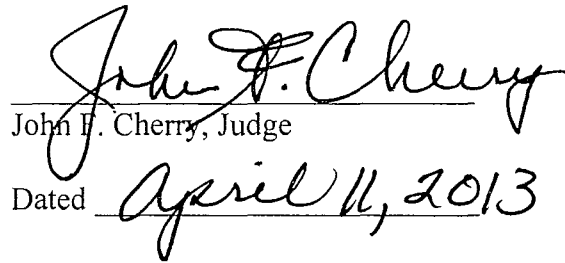 John F. Cherry
John F. Cherry, Judge
Dated April 11, 2013